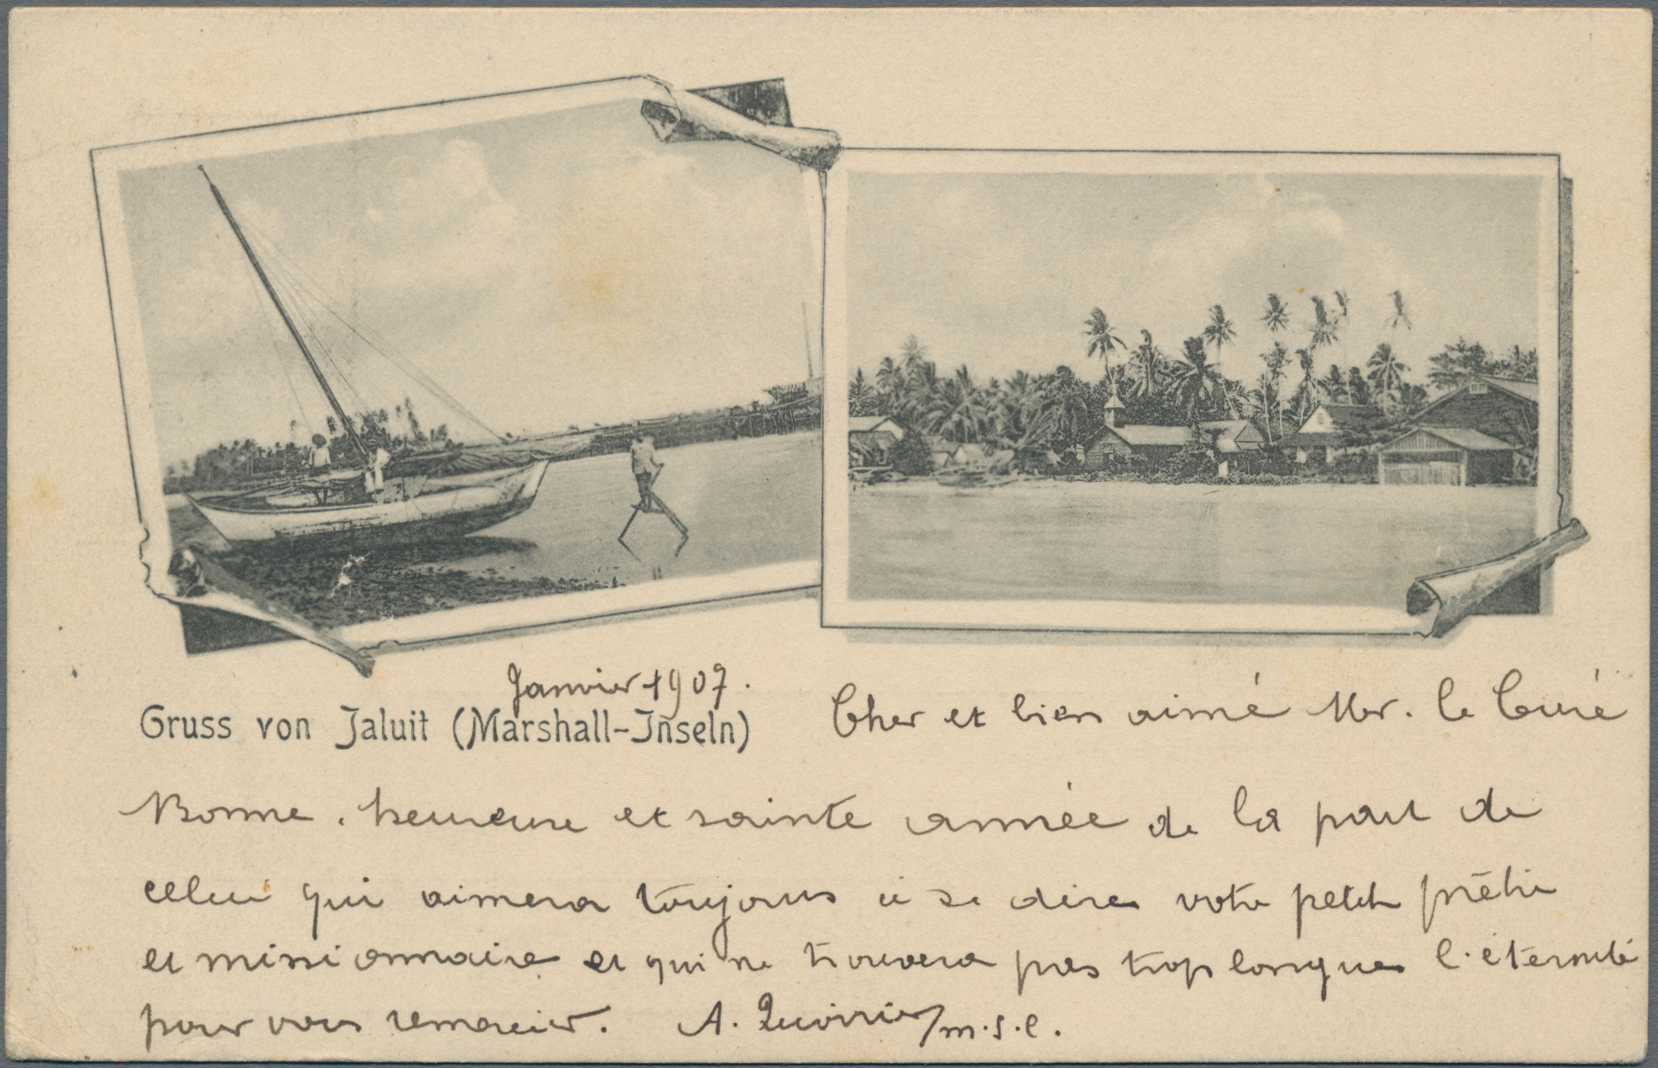 Janvier 1907.
Gruss von Jaluit (Marshall-Inseln)
Cher et bien aimé Mr. le Curé
Bonne, heureuse et sainte année de la part de
celui qui aimera toujours à se dire votre petit prêtre
et missionnaire et qui ne trouvera pas trop longue l'éternité
pour vous remercier. A. m.s.c.